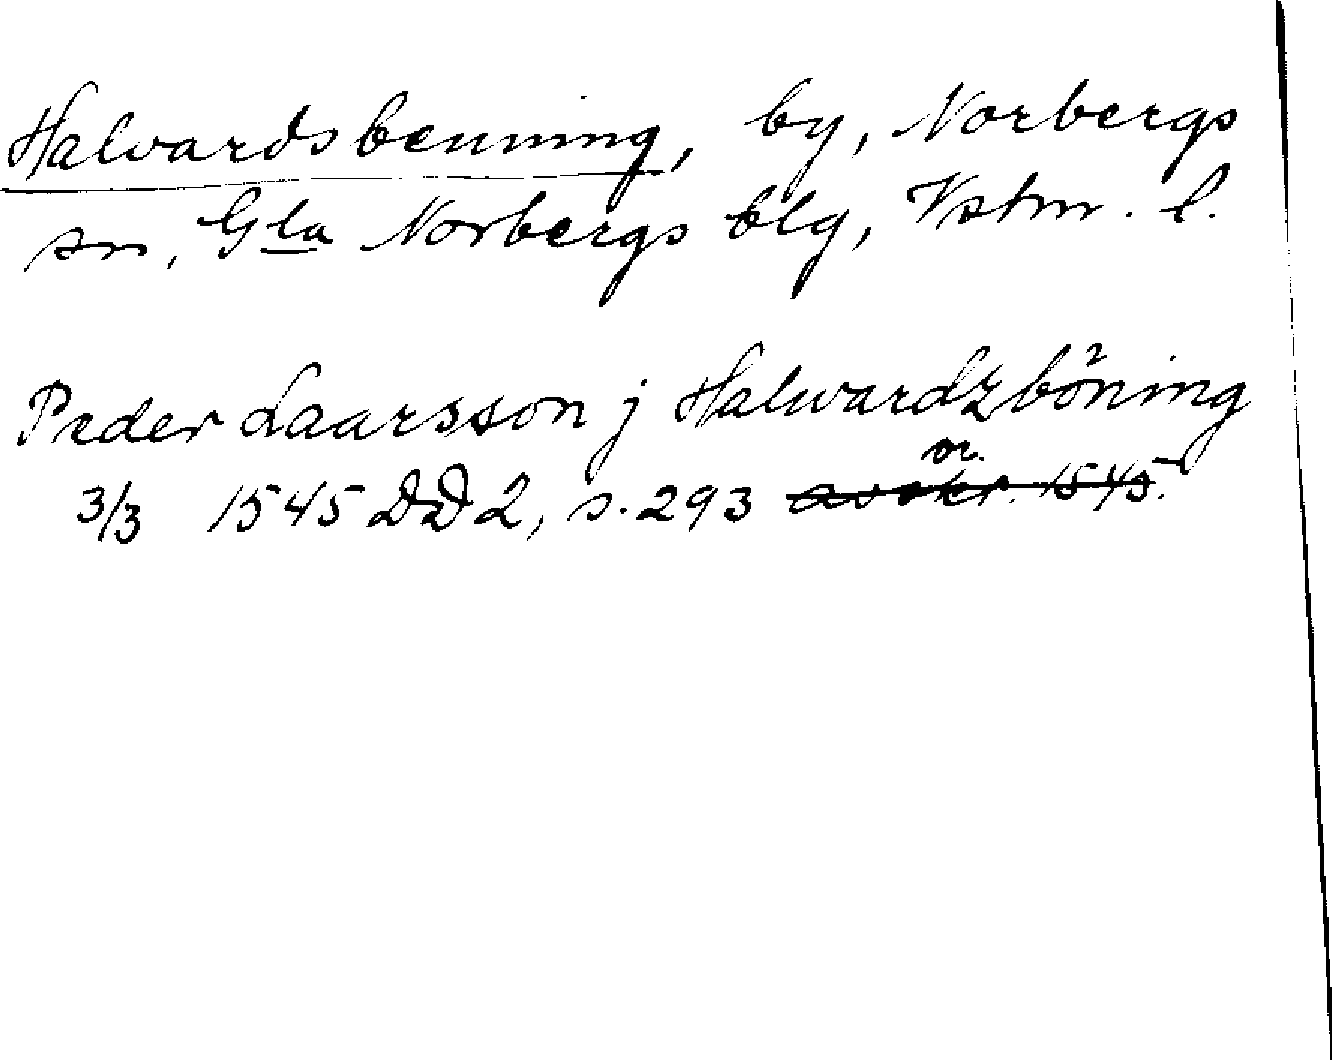 Halvardsbenning, by, Norbergs
sn, Gla Norbergs blg, Vstm. l.
Peder Laarsson j Halwardzböning
3/3 1545 DD 2, s. 293 or. avskr. 1545.